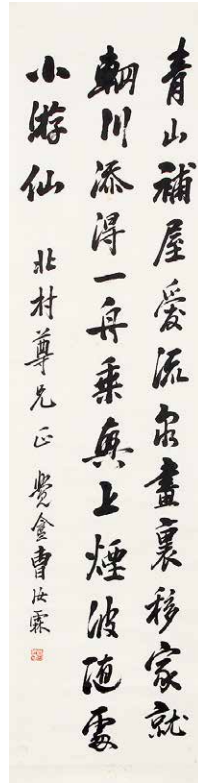 青山補屋愛流泉畫裏移家就
輞川添得一舟乗興上煙波随處
小游仙
北村尊兄正 覺盦曹汝霖